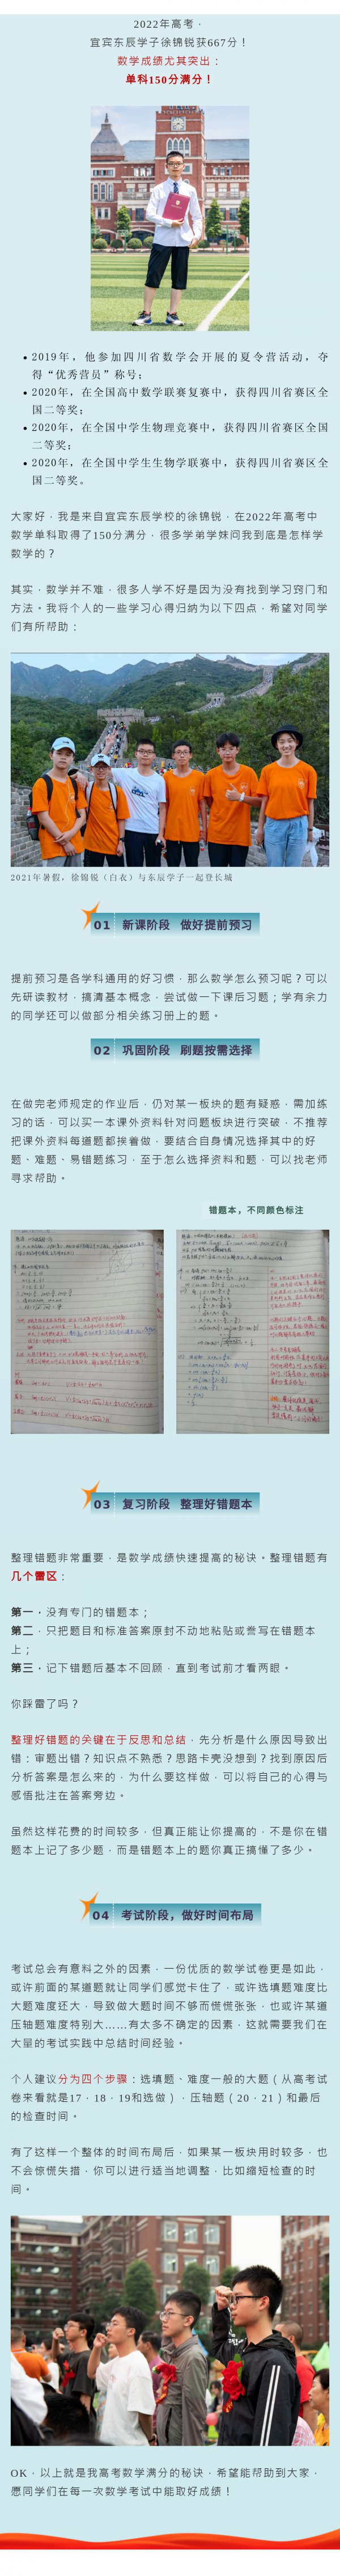 2022年高考，
宜宾东辰学子徐锦锐获667分！
数学成绩尤其突出：
单科150分满分！
2019年，他参加四川省数学会开展的夏令营活动，夺
得“优秀营员”称号；
2020年，在全国高中数学联赛复赛中，获得四川省赛区全
国二等奖；
2020年，在全国中学生物理竞赛中，获得四川省赛区全国
二等奖；
2020年，在全国中学生生物学联赛中，获得四川省赛区全
国二等奖。
大家好，我是来自宜宾东辰学校的徐锦锐，在2022年高考中
数学单科取得了150分满分，很多学弟学妹问我到底是怎样学
数学的？
其实，数学并不难，很多人学不好是因为没有找到学习窍门和
方法。我将个人的一些学习心得归纳为以下四点，希望对同学
们有所帮助：
2021年暑假，徐锦锐（白衣）与东辰学子一起登长城
01 新课阶段 做好提前预习
提前预习是各学科通用的好习惯，那么数学怎么预习呢？可以
先研读教材，搞清基本概念，尝试做一下课后习题；学有余力
的同学还可以做部分相关练习册上的题。
02 巩固阶段 刷题按需选择
在做完老师规定的作业后，仍对某一板块的题有疑惑，需加练
习的话，可以买一本课外资料针对问题板块进行突破，不推荐
把课外资料每道题都挨着做，要结合自身情况选择其中的好
题、难题、易错题练习，至于怎么选择资料和题，可以找老师
寻求帮助。
错题本，不同颜色标注
03 复习阶段 整理好错题本
整理错题非常重要，是数学成绩快速提高的秘诀。整理错题有
几个雷区：
第一，没有专门的错题本；
第二，只把题目和标准答案原封不动地粘贴或誊写在错题本
上；
第三，记下错题后基本不回顾，直到考试前才看两眼。
你踩雷了吗？
整理好错题的关键在于反思和总结，先分析是什么原因导致出
错：审题出错？知识点不熟悉？思路卡壳没想到？找到原因后
分析答案是怎么来的，为什么要这样做，可以将自己的心得与
感悟批注在答案旁边。
虽然这样花费的时间较多，但真正能让你提高的，不是你在错
题本上记了多少题，而是错题本上的题你真正搞懂了多少。
04 考试阶段，做好时间布局
考试总会有意料之外的因素，一份优质的数学试卷更是如此，
或许前面的某道题就让同学们感觉卡住了，或许选填题难度比
大题难度还大，导致做大题时间不够而慌慌张张，也或许某道
压轴题难度特别大……有太多不确定的因素，这就需要我们在
大量的考试实践中总结时间经验。
个人建议分为四个步骤：选填题、难度一般的大题（从高考试
卷来看就是17，18，19和选做），压轴题（20，21）和最后
的检查时间。
有了这样一个整体的时间布局后，如果某一板块用时较多，也
不会惊慌失措，你可以进行适当地调整，比如缩短检查的时
间。
OK，以上就是我高考数学满分的秘诀，希望能帮助到大家，
愿同学们在每一次数学考试中能取好成绩！